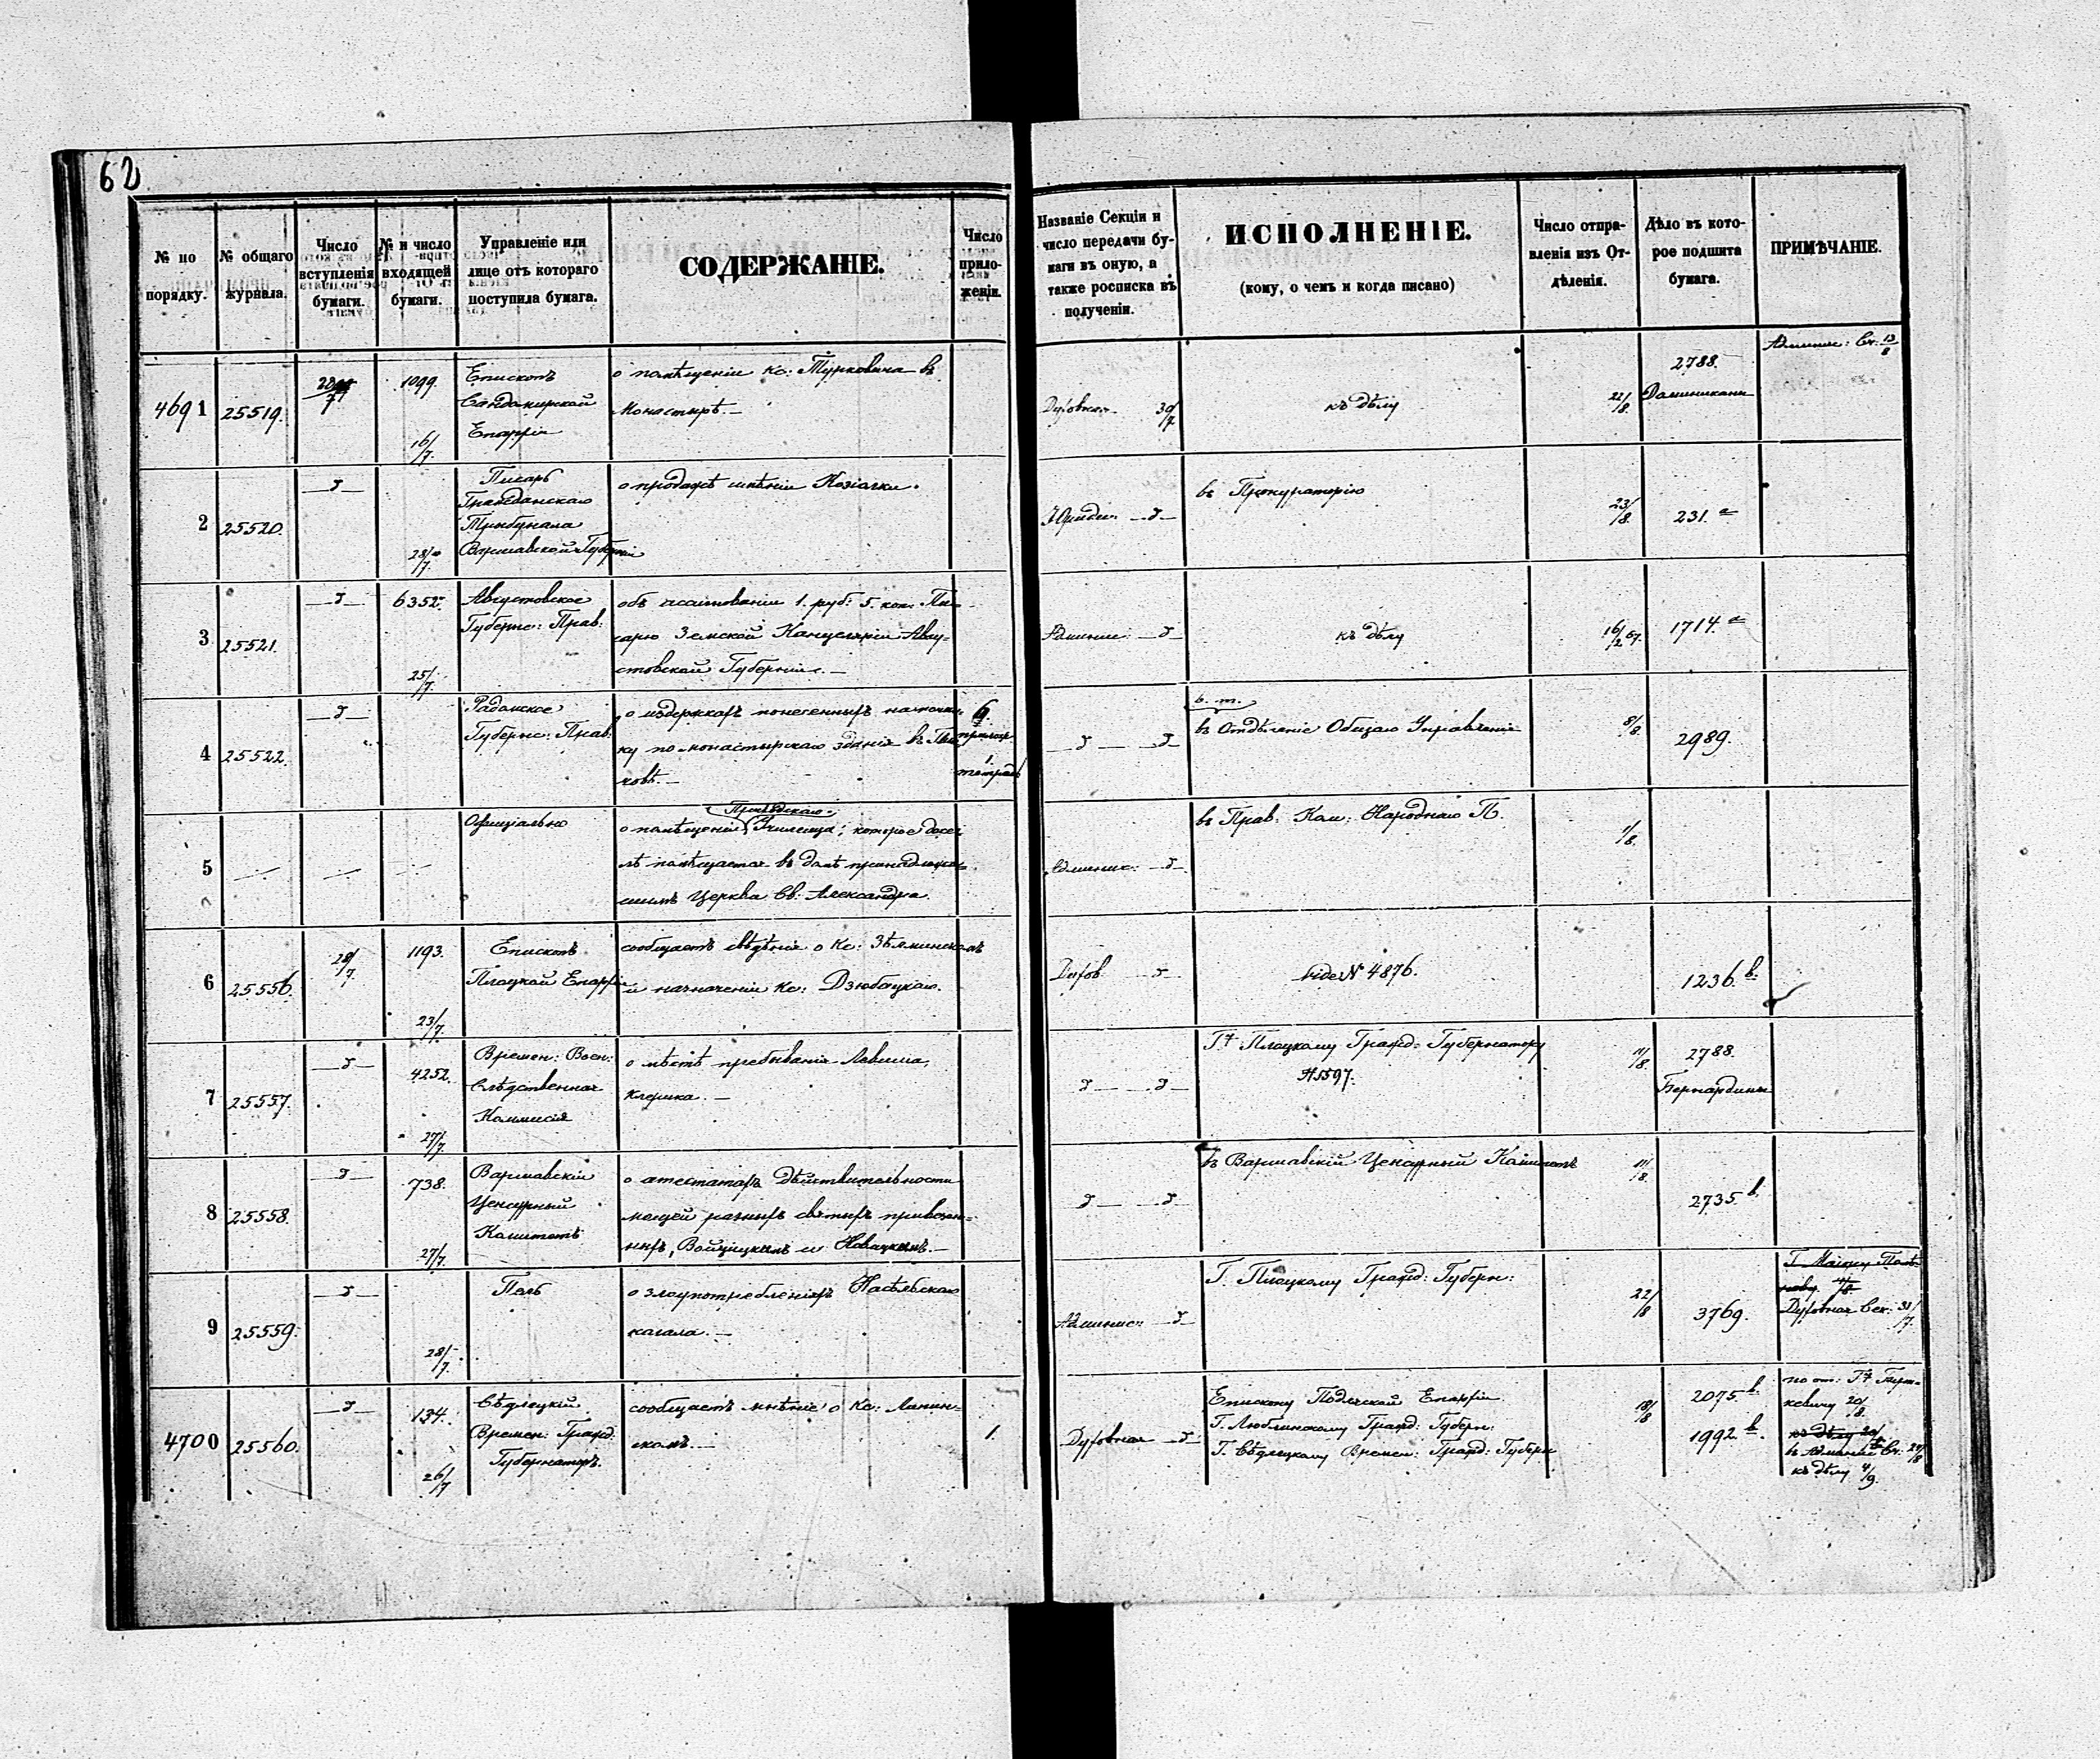 62
№ по порядку.
№ общаго журнала.
Число вступленія бумаги.
№ и число входящей бумаги.
Управленіе или лице отъ котораго поступила бумага.
СОДЕРЖАНІЕ.
Число приложеній.
Названіе Секціи и число передачи бумаги въ оную, а также росписка въ полученіи.
ИСПОЛНЕНІЕ.
(кому, о чемъ и когда писано)
Число отправленія изъ Отдѣленія.
Дѣло въ которое подшита бумага.
ПРИМѢЧАНІЕ.
4691
25519.
1099.
16/7.
Епископъ
Сандомирской
Епархіи
о помѣщеніи Кс: Турковича въ
Монастырѣ.—
Духовная 30/7
къ дѣлу
22/8.
2788.
Доминикани
Админис: Ск: 13/8
2
25520.
—д—
28/7.
Писарь
Гражданскаго
Трибунала
Варшавской Губерніи
о продажѣ имѣнія Козіолки.
Юриди: —д—
въ Прокураторію
23/8.
231. а
3
25521.
—д—
6352.
25/7.
Августовское
Губерн: Прав:
объ ассигнованіи 1. руб: 5. коп. Пи-
сарю Земской Канцеляріи Авгу=
стовской Губерніи.—
Админис: —д—
къ дѣлу
16/2 67.
1714. а
4
25522.
—д—
Радомское
Губернс: Прав:
о издержкахъ понесенныхъ на починку
ку по монастырскаго зданія въ
ковѣ.—
6.
прилож.
1.
тетрадь
—д— —д—
в. т.
въ Отдѣленіе Общаго Управленія
8/8
2989.
5
Офиціально
Приходскаго
о помѣщеніи Училища, которое досе
лѣ помѣщается въ домѣ принадлежа
щимъ Церкви Св: Александра.
Админис: —д—.
въ Прав: Ком: Народнаго П.
1/8.
6
25556.
28/7.
1193.
23/7.
Епископъ
Плоцкой Епархіи
сообщаетъ свѣдѣнія о Кс: Зѣлинскомъ
и назначеніи Кс: Дзюбацкаго.
Духов —д—
vide № 4876.
1236. b.
7
25557.
—д—
4252.
27/7.
Времен: Воен:
Слѣдственная
Коммисія
о мѣстѣ пребыванія Левиша,
клерика.—
д— —д—
Гну Плоцкому Гражд: Губернатору
№ 5597.
11/8.
2788.
Бернардины
8
25558.
—д—
738.
27/7.
Варшавскій
Ценсурный
Комитетъ
о атестатахъ дѣйствительности
мощей разныхъ святыхъ привозен=
ныхъ, Войцицкимъ и Новацкимъ.—
д— —д—
въ Варшавскій Ценсурный Комитетъ
11/8.
2735. b.
9
25559.
—д—
28/7.
Поль
о злоупотребленіяхъ Насѣльскаго
кагала.—
Админис: —д—
Г. Плоцкому Гражд: Губерн:
22/8
3769.
Г. Маіору
Духовная Сек: 31/7.
4700
25560.
—д—
134.
26/7
Сѣдлецкій
Времен: Гражд:
Губернаторъ.
сообщаетъ мнѣніе о Кс: Ланин=
скомъ.—
1.
Духовная —д—
Епископу Подляской Епархіи
Г. Люблинскому Гражд: Губерн:
Г. Сѣдлецкому Времен: Гражд: Губерн
18/8
2075. b.
1992. b.
кевичу 20/8.
къ дѣлу
къ дѣлу 4/9.